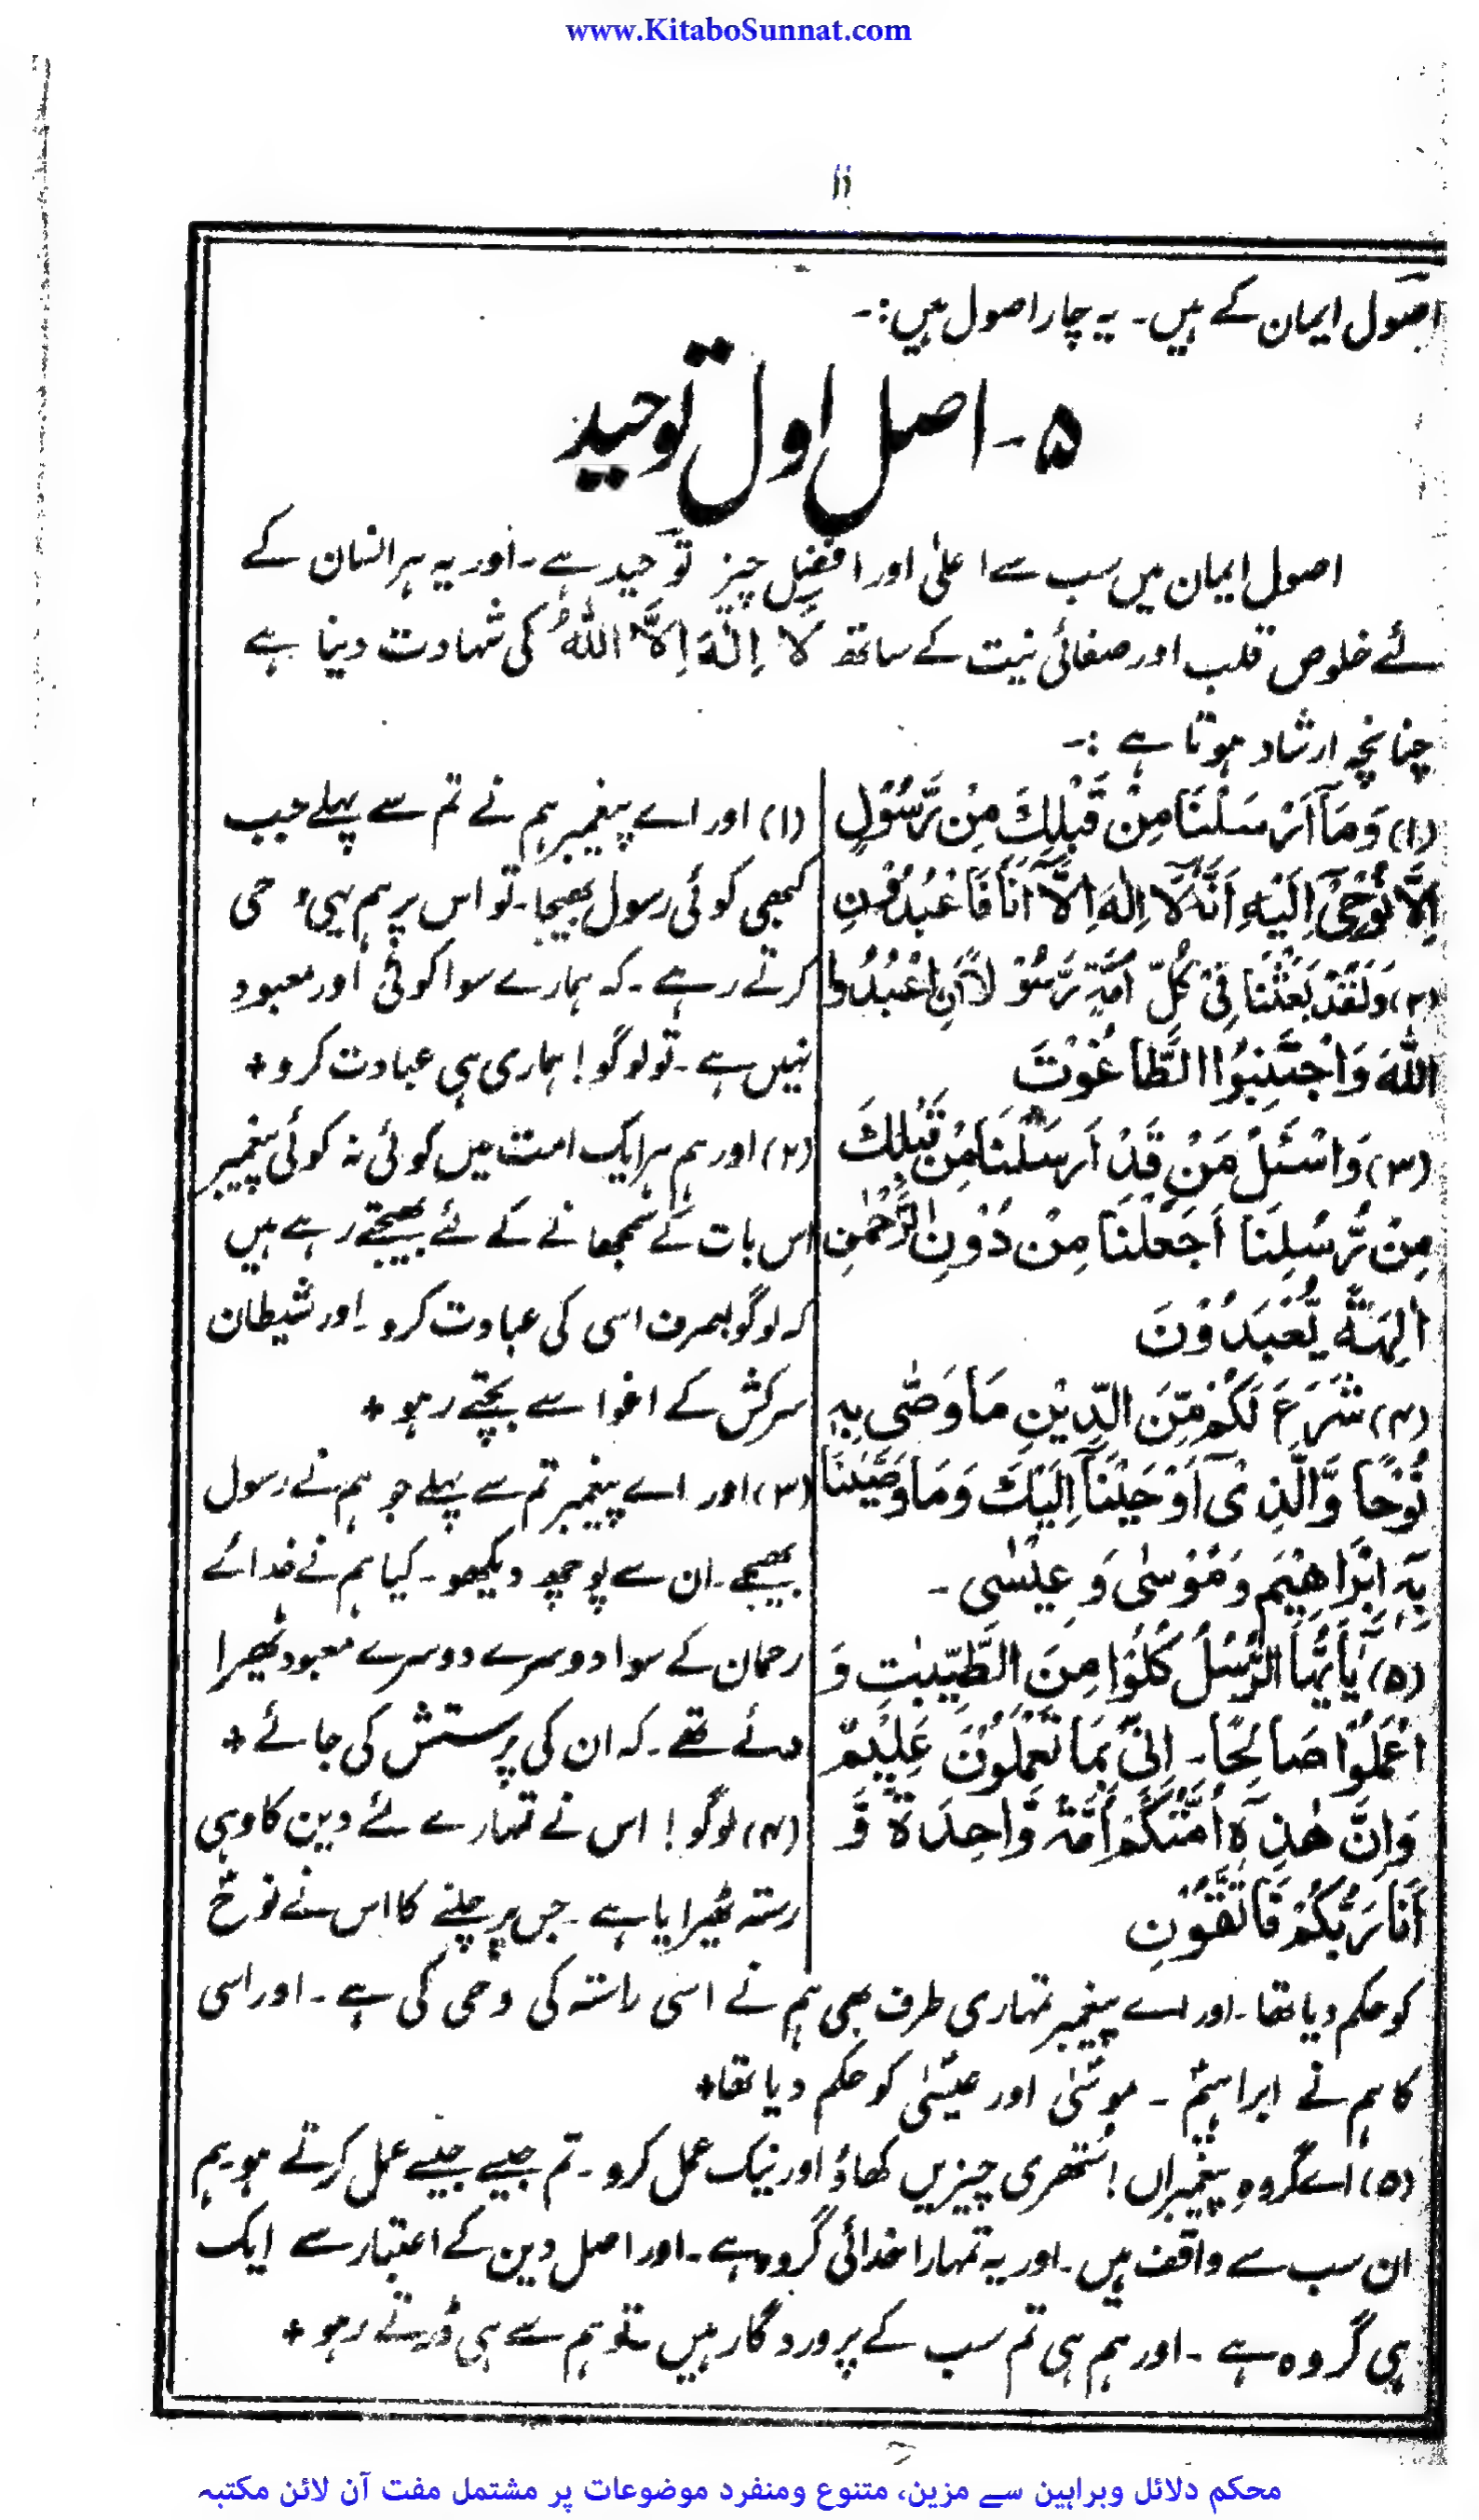 www.KitaboSunnat.com
۱۱
اصول ایمان کے ہیں۔ یہ چار اصول ہیں:۔
۵۔ اصل اول توحید
اصول ایمان میں سب سے اعلیٰ اور افضل چیز توحید ہے۔ اور یہ ہر انسان کے
لئے خلوص قلب اور صفائی نیت کے ساتھ لَا اِلٰهَ اِلَّا اللّٰهُ کی شہادت دینا ہے
چنانچہ ارشاد ہوتا ہے :۔
(۱) وَمَآ اَرْسَلْنَا مِنْ قَبْلِكَ مِنْ رَّسُوْلٍ
اِلَّا نُوْحِیْٓ اِلَیْهِ اَنَّهٗ لَآ اِلٰهَ اِلَّآ اَنَا فَاعْبُدُوْنِ
(۲) وَلَقَدْ بَعَثْنَا فِیْ كُلِّ اُمَّةٍ رَّسُوْلًا اَنِ اعْبُدُوا
اللّٰهَ وَاجْتَنِبُوا الطَّاغُوْتَ
(۳) وَاسْئَلْ مَنْ قَدْ اَرْسَلْنَا مِنْ قَبْلِكَ
مِنْ رُّسُلِنَا اَجَعَلْنَا مِنْ دُوْنِ الرَّحْمٰنِ
اٰلِهَةً یُّعْبَدُوْنَ
(۴) شَرَعَ لَكُمْ مِّنَ الدِّیْنِ مَا وَصّٰی بِهٖ
نُوْحًا وَّالَّذِیْٓ اَوْحَیْنَآ اِلَیْكَ وَمَا وَصَّیْنَا
بِهٖٓ اِبْرَاهِیْمَ وَمُوْسٰی وَعِیْسٰی ۔
(۵) یٰٓاَیُّهَا الرُّسُلُ كُلُوْا مِنَ الطَّیِّبٰتِ وَ
اعْمَلُوْا صَالِحًا۔ اِنِّیْ بِمَا تَعْمَلُوْنَ عَلِیْمٌ
وَاِنَّ هٰذِهٖٓ اُمَّتُكُمْ اُمَّةً وَّاحِدَةً وَّ
اَنَا رَبُّكُمْ فَاتَّقُوْنِ
(۱) اور اے پیغمبر ہم نے تم سے پہلے جب
کبھی کوئی رسول بھیجا۔ تو اس پر ہم یہی وحی
کرتے رہے۔ کہ ہمارے سوا کوئی اور معبود
نہیں ہے۔ تو لوگو! ہماری ہی عبادت کرو +
(۲) اور ہم ہر ایک امت میں کوئی نہ کوئی پیغمبر
اس بات کے سمجھانے کے لئے بھیجتے رہے ہیں
کہ لوگو! صرف اسی کی عبادت کرو۔ اور شیطان
سرکش کے اغوا سے بچتے رہو +
(۳) اور اے پیغمبر تم سے پہلے جو ہم نے رسول
بھیجے۔ ان سے پوچھ دیکھو۔ کیا ہم نے خدائے
رحمان کے سوا دوسرے دوسرے معبود ٹھیرا
دئے تھے۔ کہ ان کی پرستش کی جائے +
(۴) لوگو! اس نے تمہارے لئے دین کا وہی
رستہ ٹھیرایا ہے۔ جس پر چلنے کا اس نے نوحؑ
کو حکم دیا تھا۔ اور اے پیغمبر تمہاری طرف بھی ہم نے اسی راستہ کی وحی کی ہے۔ اور اسی
کا ہم نے ابراہیمؑ ۔ موسٰیؑ اور عیسٰیؑ کو حکم دیا تھا +
(۵) اے گروہِ پیغمبراں! ستھری چیزیں کھاؤ اور نیک عمل کرو۔ تم جیسے جیسے عمل کرتے ہو۔ ہم
ان سب سے واقف ہیں۔ اور یہ تمہارا خدائی گروہ ہے۔ اور اصل دین کے اعتبار سے ایک
ہی گروہ ہے۔ اور ہم ہی تم سب کے پروردگار ہیں تو ہم سے ہی ڈرتے رہو +
محکم دلائل وبراہین سے مزین، متنوع ومنفرد موضوعات پر مشتمل مفت آن لائن مکتبہ